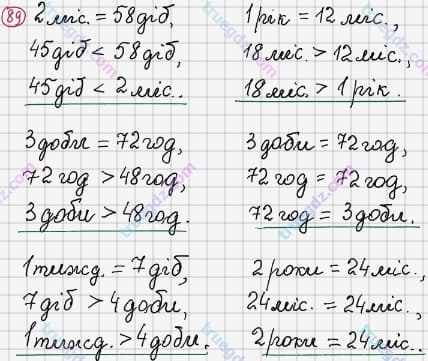 89
2 міс. = 58 діб,
45 діб < 58 діб,
45 діб < 2 міс..
1 рік = 12 міс.,
18 міс. > 12 міс.,
18 міс. > 1 рік.
3 доби = 72 год,
72 год > 48 год,
3 доби > 48 год.
3 доби = 72 год,
72 год = 72 год,
72 год = 3 доби.
1 тижд. = 7 діб,
7 діб > 4 доби,
1 тижд. > 4 доби.
2 роки = 24 міс.,
24 міс. = 24 міс.,
2 роки = 24 міс..
truegdz.com